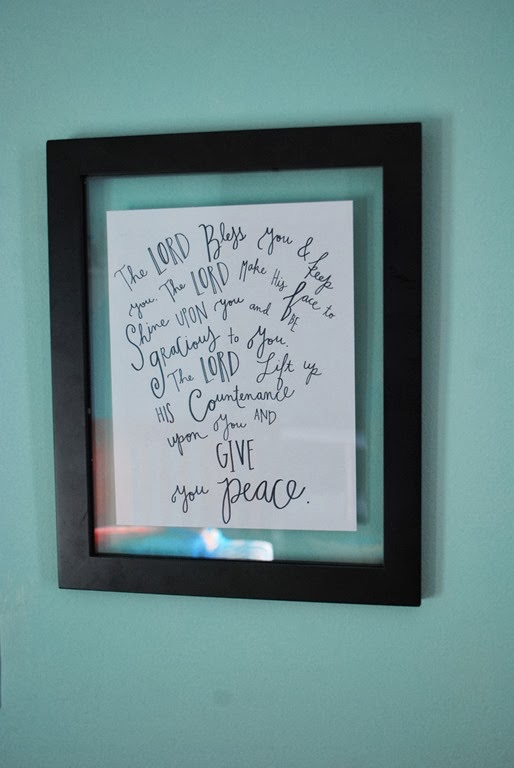 The LORD Bless you & keep
you. The LORD Make His face to
Shine UPON you and BE
gracious to you.
The LORD Lift up
HIS Countenance
upon you AND
GIVE
you peace.